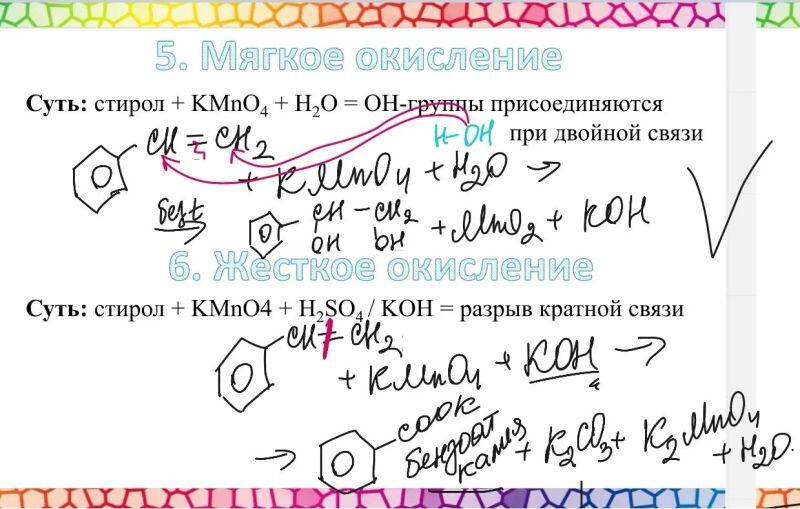 5. Мягкое окисление
Суть: стирол + KMnO4 + H2O = OH-группы присоединяются
при двойной связи
H-OH
CH = CH2
+ KMnO4 + H2O →
без t
CH - CH2
OH OH
+ MnO2 + KOH
6. Жёсткое окисление
Суть: стирол + KMnO4 + H2SO4 / KOH = разрыв кратной связи
CH = CH2
+ KMnO4 + KOH →
→ COOK
бензоат
калия
+ K2CO3 + K2MnO4
+ H2O.